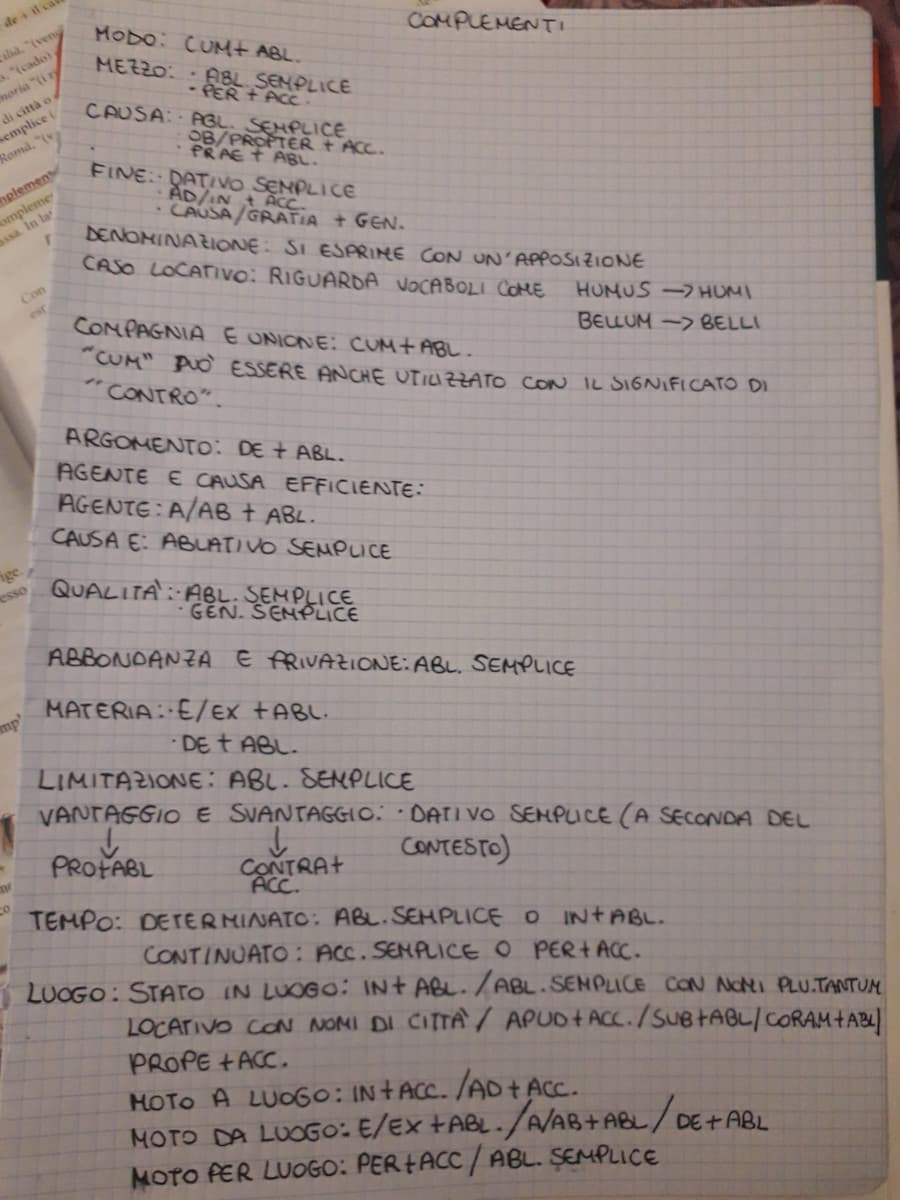 COMPLEMENTI
MODO: CUM + ABL.
MEZZO: · ABL. SEMPLICE
· PER + ACC.
CAUSA: · ABL. SEMPLICE
OB/PROPTER + ACC.
· PRAE + ABL.
FINE: · DATIVO SEMPLICE
· AD/IN + ACC.
· CAUSA/GRATIA + GEN.
DENOMINAZIONE: SI ESPRIME CON UN'APPOSIZIONE
CASO LOCATIVO: RIGUARDA VOCABOLI COME HUMUS → HUMI
BELLUM → BELLI
COMPAGNIA E UNIONE: CUM + ABL.
"CUM" PUÒ ESSERE ANCHE UTILIZZATO CON IL SIGNIFICATO DI
"CONTRO".
ARGOMENTO: DE + ABL.
AGENTE E CAUSA EFFICIENTE:
AGENTE: A/AB + ABL.
CAUSA E: ABLATIVO SEMPLICE
QUALITÀ: · ABL. SEMPLICE
· GEN. SEMPLICE
ABBONDANZA E PRIVAZIONE: ABL. SEMPLICE
MATERIA: · E/EX + ABL.
· DE + ABL.
LIMITAZIONE: ABL. SEMPLICE
VANTAGGIO E SVANTAGGIO: · DATIVO SEMPLICE (A SECONDA DEL
↓ ↓ CONTESTO)
PRO + ABL CONTRA +
ACC.
TEMPO: DETERMINATO: ABL. SEMPLICE O IN + ABL.
CONTINUATO: ACC. SEMPLICE O PER + ACC.
LUOGO: STATO IN LUOGO: IN + ABL. / ABL. SEMPLICE CON NOMI PLU. TANTUM
LOCATIVO CON NOMI DI CITTÀ / APUD + ACC. / SUB + ABL / CORAM + ABL /
PROPE + ACC.
MOTO A LUOGO: IN + ACC. / AD + ACC.
MOTO DA LUOGO: E/EX + ABL. / A/AB + ABL / DE + ABL
MOTO PER LUOGO: PER + ACC / ABL. SEMPLICE